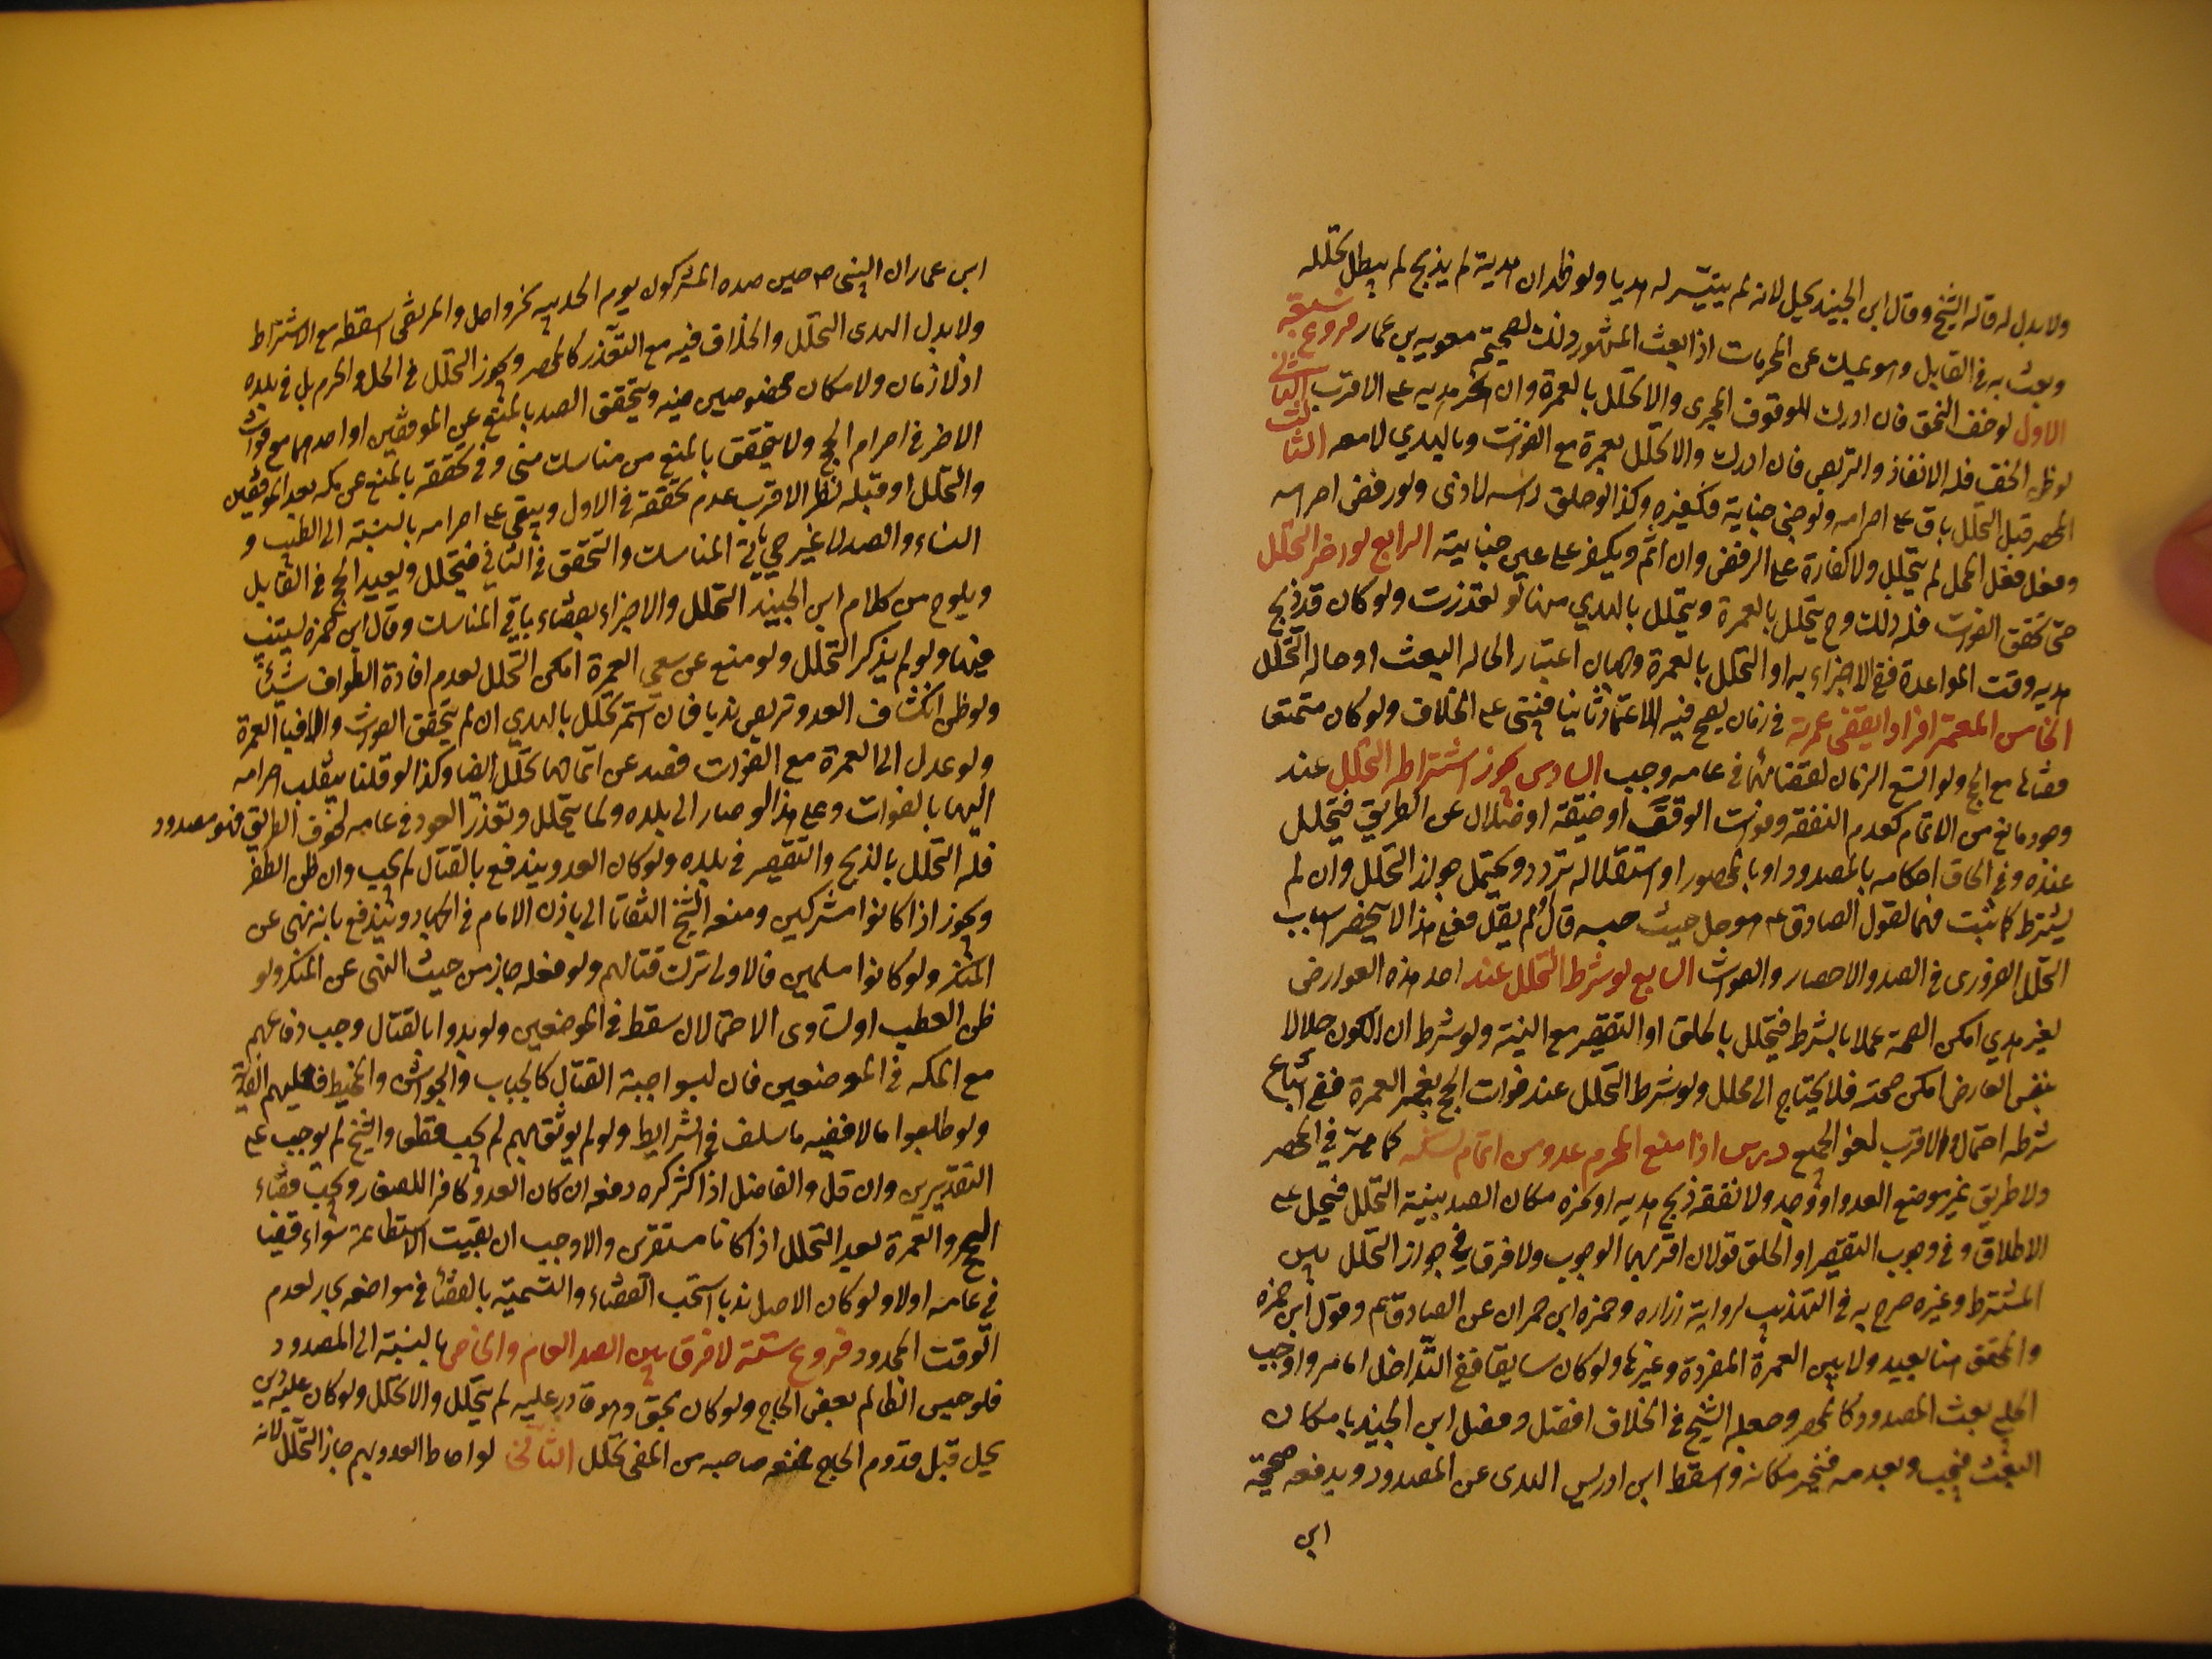 ولا بدل له قاله الشيخ وقال ابن الجنيد يحل لانه لم يتيسر له هديا ولو ظهر ان هديه لم يذبح لم يبطل تحلله
وبعث به في القابل وهو يمسك عن المحرمات اذا بعث المشهور ذلك لصحيحة معوية بن عمار فروع سبعة
الاول لو خف التحق فان ادرك الموقوف المجزى والا تحلل بالعمرة وان نحر هديه على الاقرب الثاني
لو ظن الخف فله الانفاذ والتربص فان ادرك والا تحلل بعمرة مع الفوات وبالهدي لا معه الثالث
المحصر قبل التحلل باق على احرامه ولو جنى جناية فكغيره وكذا لو حلق راسه لاذى ولو رفض احرامه
وفعل فعل المحل لم يتحلل ولا كفارة على الرفض وان اثم ويكفر على عين جنايته الرابع لو اخر التحلل
حتى تحقق الفوات فله ذلك وح يتحلل بالعمرة ويتحلل بالهدي منها لو تعذرت ولو كان قد ذبح
هديه وقت المواعدة ففي الاجزاء به او التحلل بالعمرة وجهان اعتبار الحالة البعث او حالة التحلل
الخامس المعتمر افرادا يقضى عمرته في زمان يصح فيه الاعتمار ثانيا فيبنى على الخلاف ولو كان متمتعا
قضاها مع الحج ولو اتسع الزمان لقضائها في عامه وجب السادس يجوز اشتراط التحلل عند
وجود مانع من الاتمام كعدم النفقه وفوات الوقت او ضيقه او ضلال عن الطريق فيتحلل
عنده وفي الحاق احكامه بالمصدود او بالمحصور او استقلاله تردد ويحتمل جواز التحلل وان لم
يشترط كما ثبت فيهما لقول الصادق ع هو حل حيث حبسه قال او لم يقل فعلى هذا لا ينحصر اسباب
التحلل الضرورى في الصد والاحصار والفوات السابع لو شرط التحلل عند احد هذه العوارض
بغير هدي امكن الصحة عملا بالشرط فيتحلل بالحلق او التقصير مع النية ولو شرط ان اكون حلالا
بنفس العارض امكن صحته فلا يحتاج الى محلل ولو شرط التحلل عند فوات الحج بغير العمرة ففي اتباع
شرطه احتمال والاقرب لغو الجميع درس اذا منع المحرم عدو من اتمام نسكه كما مر في الحصر
ولا طريق غير موضع العدو او وجد ولا نفقة ذبح هديه او نحره مكان الصد بنية التحلل فيحل على
الاطلاق وفي وجوب التقصير او الحلق قولان اقربهما الوجوب ولا فرق في جواز التحلل بين
المشترط وغيره صرح به في التهذيب لرواية زراره وحمزه ابن حمران عن الصادق ع وقول ابن حمزه
والمحقق هنا بعيد ولا بين العمرة المفردة وغيرها ولو كان سايقا ففي التداخل ما مر واوجب
الحلبي بعث المصدود كالمحصر وجعله الشيخ في الخلاف افضل وفصل ابن الجنيد بامكان
البعث فيجب وبعدمه فينحر مكانه واسقط ابن ادريس الهدى عن المصدود ويدفعه صحيحة
ابن
ابن عمار ان النبى ص حين صده المشركون يوم الحديبيه نحر واحل والمرتضى اسقطه مع الاشتراط
ولا بدل الهدى التحلل والخلاف فيه مع التعذر كالمحصر ويجوز التحلل في الحل والحرم بل في بلده
اذ لا زمان ولا مكان مخصوصين فيه ويتحقق الصد بالمنع عن الموقفين او احدهما مع فوات
الاخر في احرام الحج ولا يتحقق بالمنع من مناسك منى وفي تحققه بالمنع عن مكه بعد الموقفين
والتحلل او قبله نظر الاقرب عدم تحققه في الاول ويبقى على احرامه بالنسبة الى الطيب و
النساء والصد لا غير حتى ياتي المناسك والتحقق في الثاني فيتحلل ويعيد الحج في القابل
ويلوح من كلام ابن الجنيد التحلل والاجزاء بقضاء باقي المناسك وقال ابن حمزه ليستنيب
فيها ولو لم يذكر التحلل ولو منع عن سعي العمرة امكن التحلل لعدم افادة الطواف شيئا
ولو ظن انكشاف العدو تربص ندبا فان استمر تحلل بالهدي ان لم يتحقق الفوات والا فبالعمرة
ولو عدل الى العمرة مع الفوات فصد عن اتمامها تحلل ايضا وكذا لو قلنا ينقلب احرامه
اليها بالفوات وعلى هذا لو صار الى بلده ولما يتحلل وتعذر العود في عامه لخوف الطريق فهو مصدود
فله التحلل بالذبح والتقصير في بلده ولو كان العدو يندفع بالقتال لم يجب وان ظن الظفر
ويجوز اذا كانوا مشركين ومنعه الشيخ التفاتا الى باذن الامام في الجهاد ويندفع بانه نهى عن
المنكر ولو كانوا مسلمين فالاولى ترك قتالهم ولو فعله جاز من حيث النهى عن المنكر ولو
ظن العطب او تساوى الاحتمالان سقط في الموضعين ولو بدوا بالقتال وجب دفاعهم
مع المكنه في الموضعين فان لبسوا جبة القتال كالجباب والجواشن والمخيط فعليهم الفدية
ولو طلبوا مالا ففيه ما سلف في الشرايط ولو لم يوثق بهم لم يجب قطعا والشيخ لم يوجب على
التقديرين وان قل والفاضل اذا كثر كره دفعه ان كان العدو كافرا للصغار ويجب قضاء
الحج والعمرة بعد التحلل اذا كانا مستقرين والاوجب ان بقيت الاستطاعة سواء قضيا
في عامه اولا ولو كان الاصل ندبا استحب القضاء والتسمية بالقضاء في مواضعه مجاز لعدم
التوقت المحدود فروع ستة لا فرق بين الصد العام والخاص بالنسبة الى المصدود
فلو حبس الظالم بعض الحاج ولو كان بحق وهو قادر عليه لم يتحلل والا تحلل ولو كان عليه دين
يحل قبل قدوم الحاج فمنعه صاحبه من المضى تحلل الثاني لو احاط العدو بهم جاز التحلل لانه